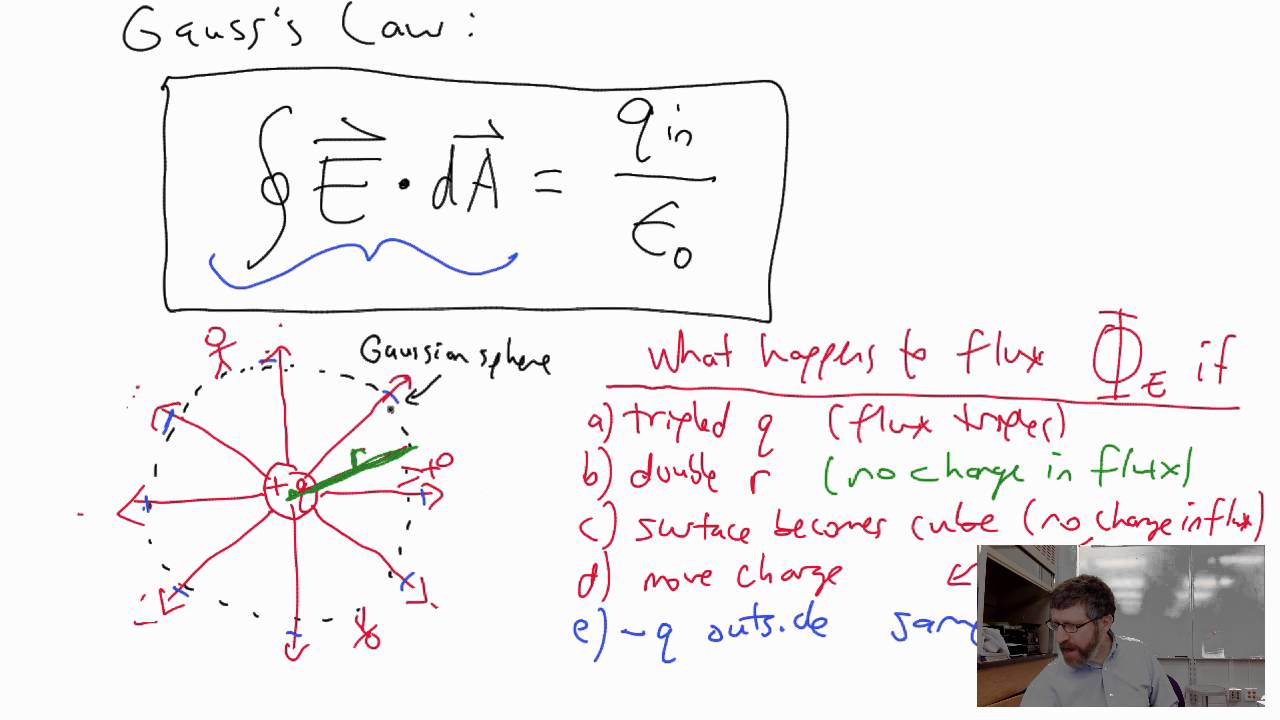 Gauss's Law:
∮ E⃗ · dA⃗ = qin / ϵ0
Gaussian sphere
r
+ q
what happens to flux ΦE if
a) tripled q (flux triples)
b) double r (no change in flux)
c) surface becomes cube (no change in flux)
d) move charge
e) -q outside